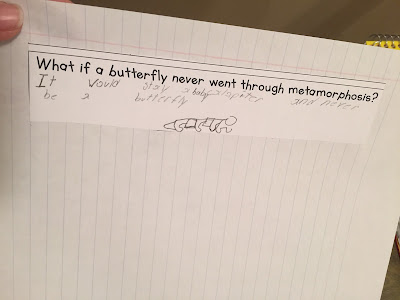 What if a butterfly never went through metamorphosis?
It would stay a baby and never
be a butterfly